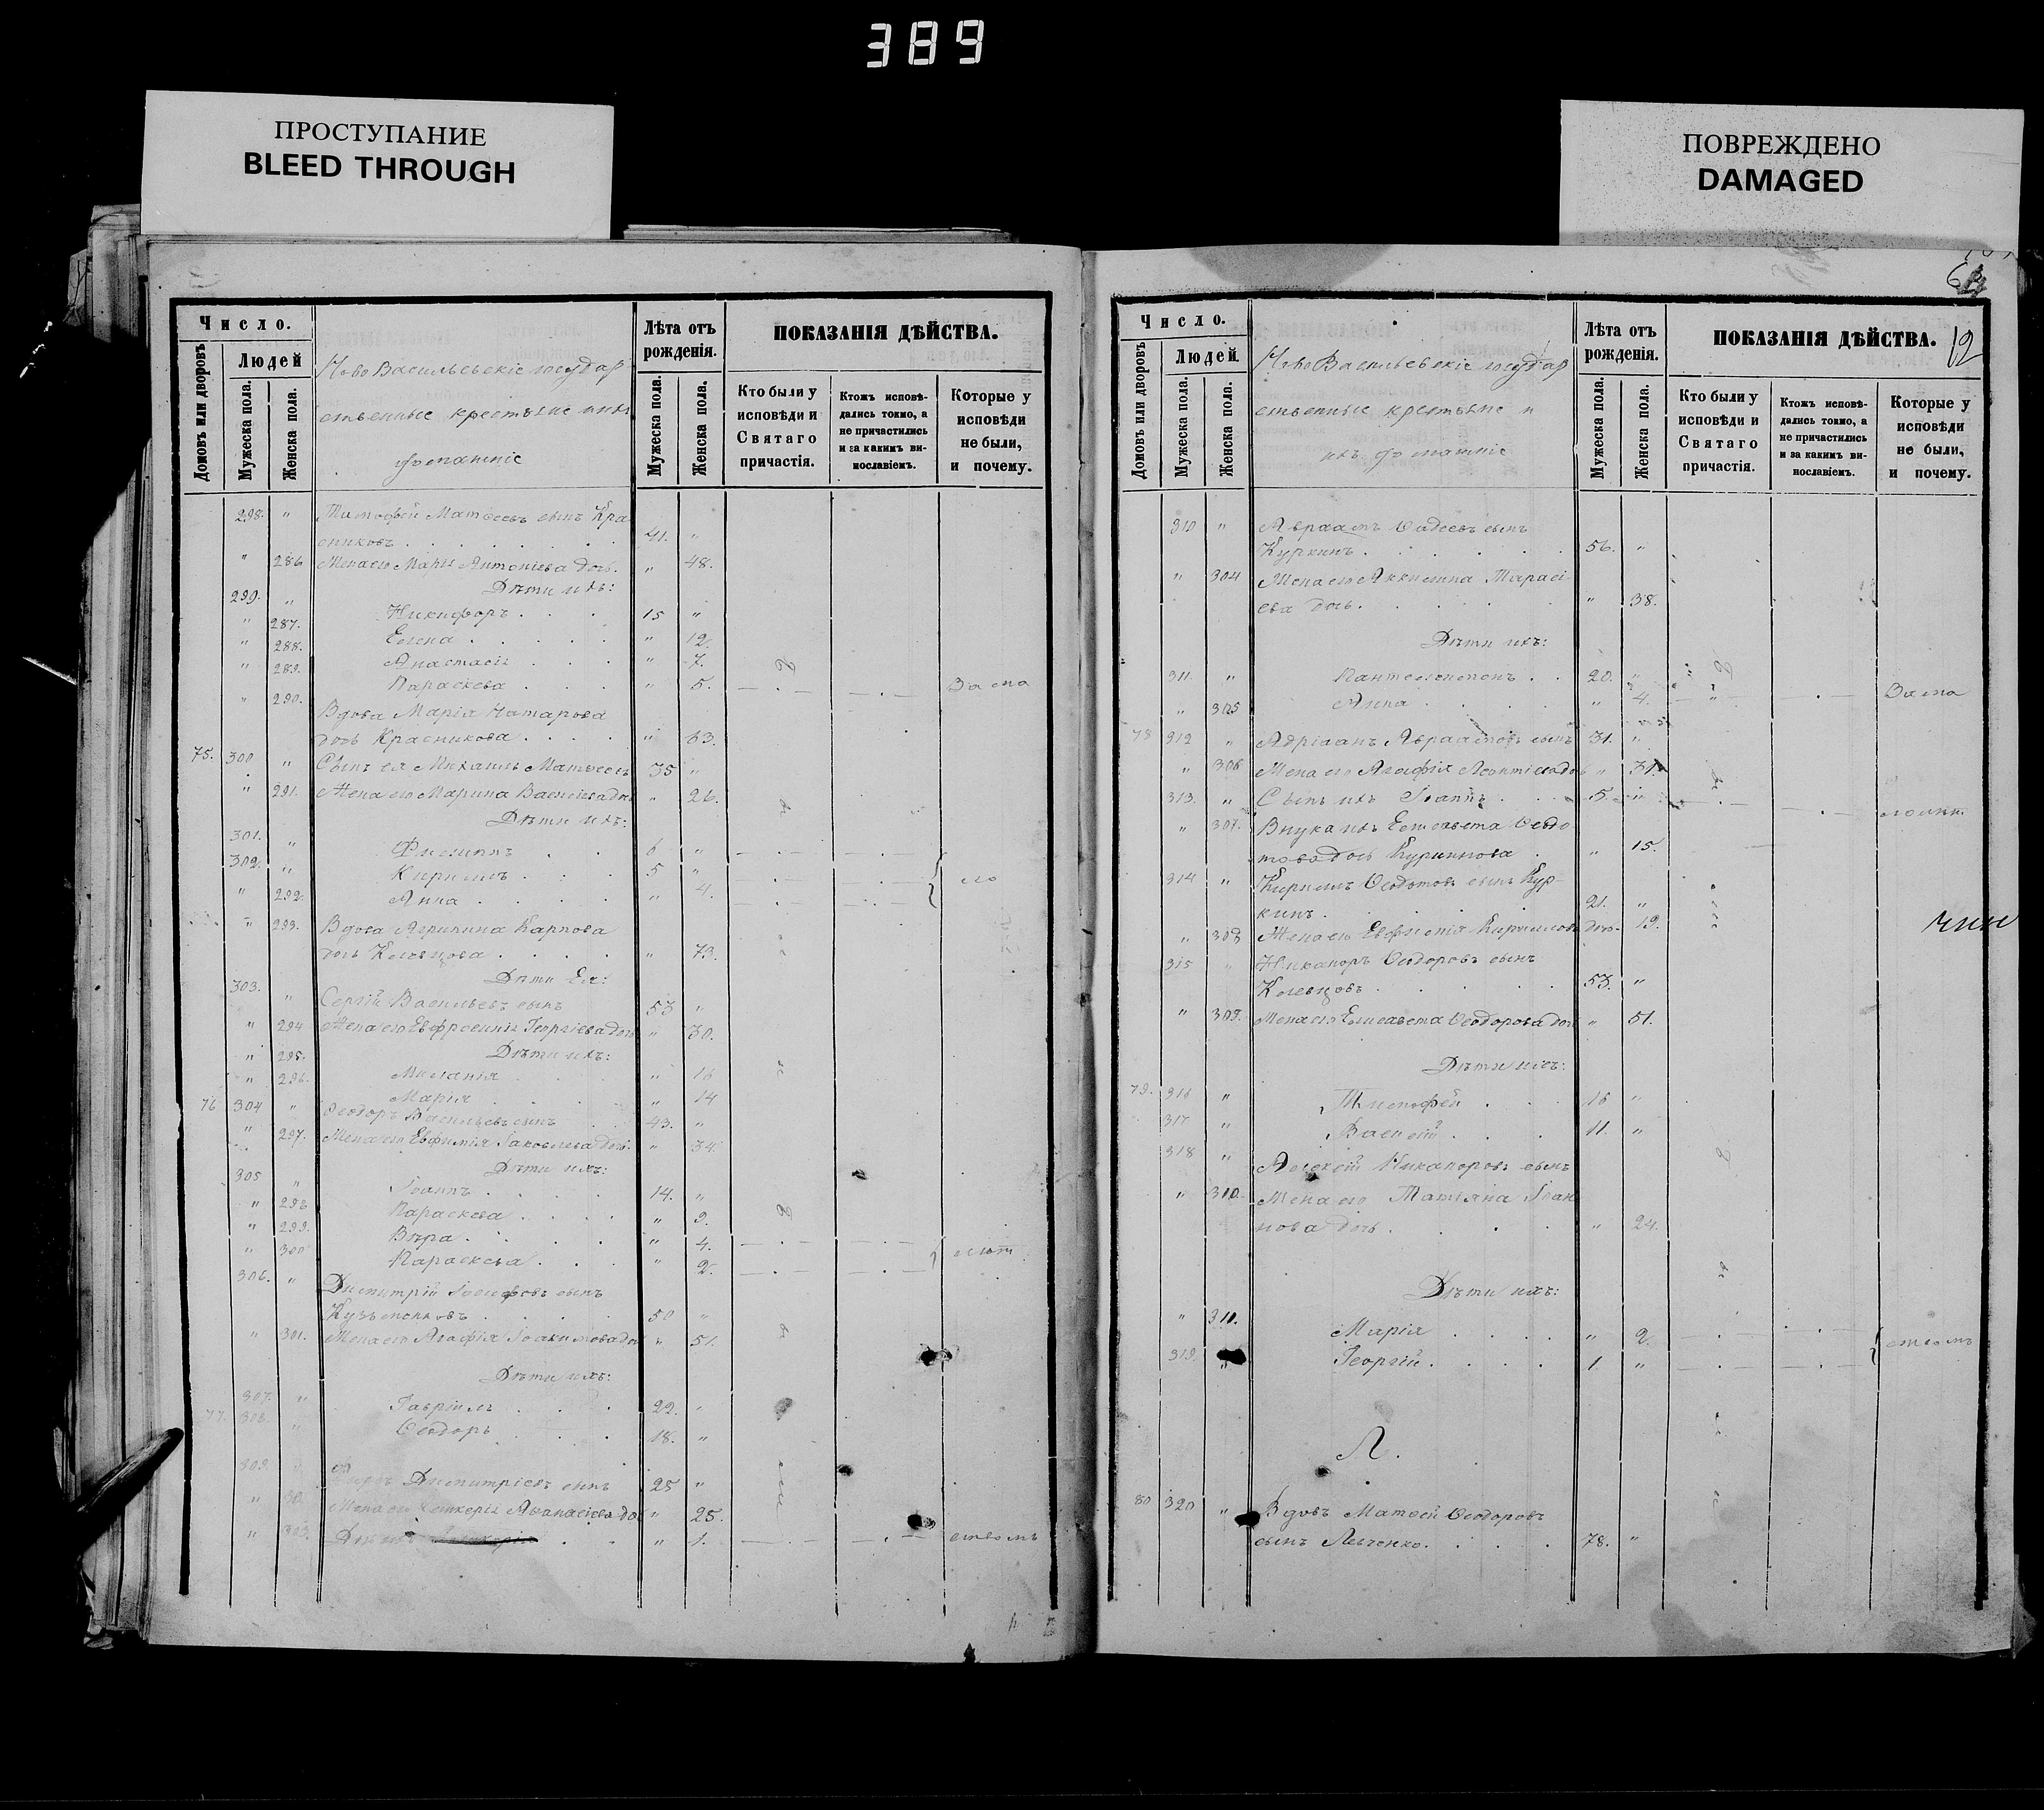 389
ПРОСТУПАНИЕ
BLEED THROUGH
ПОВРЕЖДЕНО
DAMAGED
Число.
Домовъ или дворовъ
Людей
Мужеска пола.
Женска пола.
НовоВасильевскіе государ
ственные крестьяне ихъ
домашніе
Лѣта отъ рожденія.
Мужеска пола.
Женска пола.
ПОКАЗАНІЯ ДѢЙСТВА.
Кто были у исповѣди и Святаго причастія.
Ктожъ исповѣ-дались токмо, а не причастились и за какимъ ви-нословіемъ.
Которые у исповѣди не были, и почему.
298. " Тимофей Матѳеевъ сынъ Кра
сниковъ . . . 41. "
" 286 Жена его Марія Антоніева дочь. " 48.
Дѣти ихъ:
299. " Никифоръ . . . 15 "
" 287. Елена . . . " 12.
" 288. Анастасія . . . " 7.
" 289. Параскева . . . " 5. За ма
" 290. Вдова Марія Назарова
дочь Красникова . . . " 63.
75. 300 " Сынъ ея Михаилъ Матѳеевъ 35 "
" 291. Жена его Марина Васильева дочь " 26.
Дѣти ихъ:
301. " Филиппъ . . 6 "
302. " Кириллъ . . . 5 "
" 292. Анна . . . " 4. ло
" 293. Вдова Агрипина Карпова
дочь Колевцова . . . " 73.
Дѣти Ея:
303. " Сергій Васильевъ сынъ 53 "
" 294 Жена его Евфросинія Георгіева дочь " 30.
Дѣти ихъ:
" 295. Миланія " 16
" 296. Марія . . . " 14
76 304 " Ѳеодоръ Васильевъ сынъ 43. "
" 297. Жена его Евфимія Іаковлева дочь. " 34.
Дѣти ихъ:
305 " Іоаннъ . . . 14. "
" 298 Параскева . . . " 9.
" 299. Вѣра . . . " 4.
" 300 Параскева . . . " 2. лѣт
306. " Димитрій Іосифовъ сынъ
Кузьменковъ . . . 50 "
" 301. Жена его Агафія Іоакимова дочь " 51.
Дѣти ихъ:
307. " Гавріилъ . . . 22. "
77. 308. " Ѳеодоръ . . . 18. "
309. " Димитріевъ сынъ 25 "
" Жена его Аѳанасіева до " 25.
" " 1. ствомъ
Число.
Домовъ или дворовъ
Людей.
Мужеска пола.
Женска пола.
НовоВасильевскіе государ
ственные крестьяне и
ихъ домашніе
Лѣта отъ рожденія.
Мужеска пола.
Женска пола.
ПОКАЗАНІЯ ДѢЙСТВА.
12
Кто были у исповѣди и Святаго причастія.
Ктожъ исповѣ-дались токмо, а не причастились и за какимъ ви-нословіемъ.
Которые у исповѣди не были, и почему.
310 " Авраамъ Ѳадеевъ сынъ
Куркинъ . . . 56. "
" 304 Жена его Акилина Тарасі
ева дочь. . . . " 38.
Дѣти ихъ:
311. " Пантелеимонъ . . 20. "
" 305 Анна . . . " 4. За ма
78 312 " Адріанъ Авраамовъ сынъ 31. "
" 306 Жена его Агафія Леонтіева дочь " 31.
313. " Сынъ ихъ Іоаннъ . . 5. "
" 307. Внука ихъ Елисавета Ѳедо
това дочь Куркинова . " 15.
314 " Кириллъ Ѳедотовъ сынъ Кур-
кинъ . . . 21. "
" 308 Жена его Евфимія Кириллова дочь 19.
315 " Никаноръ Ѳеодоровъ сынъ
Колевцовъ . . . 53. "
" 309. Жена его Елисавета Ѳеодорова дочь " 51.
Дѣти ихъ:
79. 316 " Тимофей . . 16 "
317 " Василій . . . 11. "
318 " Алексій Никаноровъ сынъ
" 310. Жена его Татіана Іоан
нова дочь . . . " 24.
Дѣти ихъ:
" 311. Марія . . . " 2
319. " Георгій . . . 1 " ствомъ
Л.
80 320 " Вдовъ Матѳей Ѳеодоровъ
сынъ Левченко. . . . 78. "